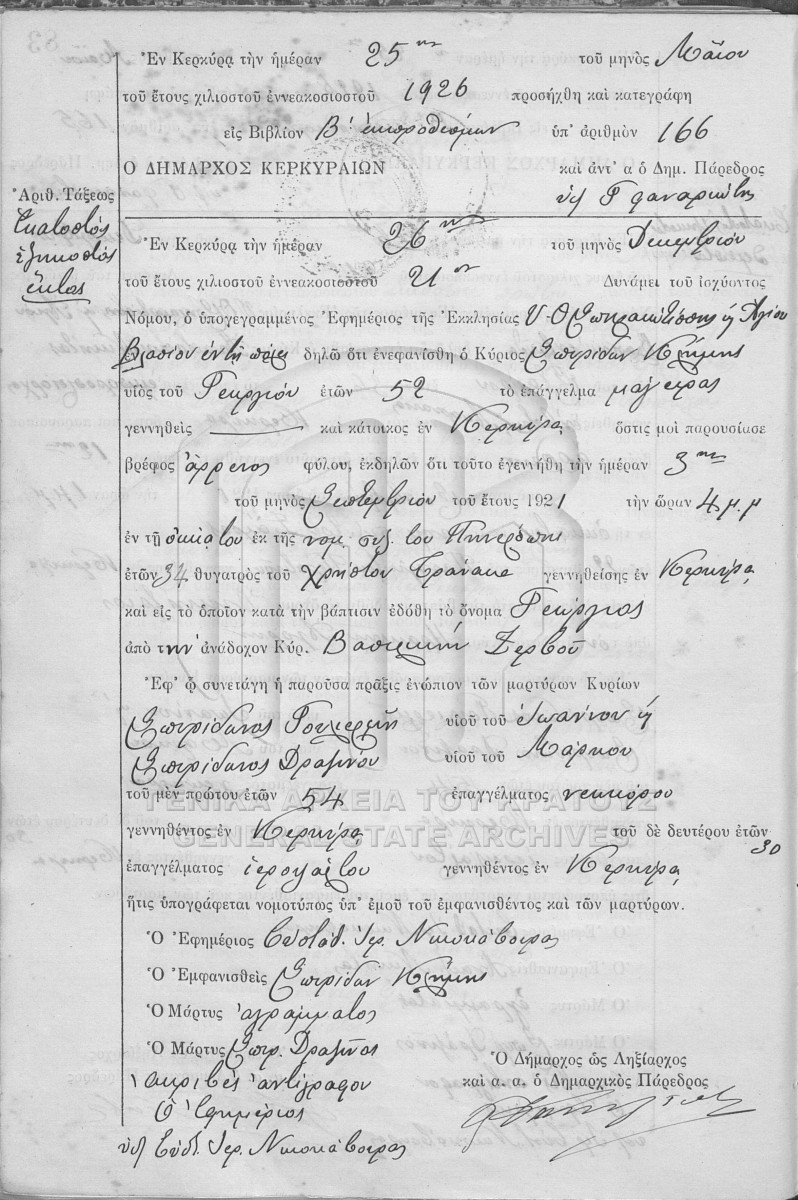 Ἐν Κερκύρᾳ τὴν ἡμέραν 25ην τοῦ μηνὸς Μαΐου
τοῦ ἔτους χιλιοστοῦ ἐννεακοσιοστοῦ 1926 προσήχθη καὶ κατεγράφη
εἰς Βιβλίον Β' ἐκπροθέσμων ὑπ' ἀριθμὸν 166
Ο ΔΗΜΑΡΧΟΣ ΚΕΡΚΥΡΑΙΩΝ καὶ ἀντ' α ὁ Δημ. Πάρεδρος
Ἀριθ. Τάξεως
Ἑκατοστὸς
ἑξηκοστὸς
ἕκτος
Ἐν Κερκύρᾳ τὴν ἡμέραν 26ην τοῦ μηνὸς Δεκεμβρίου
τοῦ ἔτους χιλιοστοῦ ἐννεακοσιοστοῦ 21ου Δυνάμει τοῦ ἰσχύοντος
Νόμου, ὁ ὑπογεγραμμένος Ἐφημέριος τῆς Ἐκκλησίας Υ. Θ. Σπηλαιωτίσσης ἢ Ἁγίου
Βλασίου ἐν τῇ πόλει δηλῶ ὅτι ἐνεφανίσθη ὁ Κύριος Σπυρίδων
υἱὸς τοῦ Γεωργίου ἐτῶν 52 τὸ ἐπάγγελμα μάγειρας
γεννηθεὶς —— καὶ κάτοικος ἐν Κερκύρᾳ ὅστις μοὶ παρουσίασε
βρέφος ἄρρενος φύλου, ἐκδηλῶν ὅτι τοῦτο ἐγεννήθη τὴν ἡμέραν 3ην
τοῦ μηνὸς Σεπτεμβρίου τοῦ ἔτους 1921 τὴν ὥραν 4 μ.μ
ἐν τῇ οἰκίᾳ του ἐκ τῆς νομ. συζ. του
ἐτῶν 34 θυγατρὸς τοῦ Χρήστου γεννηθείσης ἐν Κερκύρᾳ
καὶ εἰς τὸ ὁποῖον κατὰ τὴν βάπτισιν ἐδόθη τὸ ὄνομα Γεώργιος
ἀπὸ τὴν ἀνάδοχον Κύρ. Βασιλικὴν Ζερβοῦ
Ἐφ' ᾧ συνετάγη ἡ παροῦσα πρᾶξις ἐνώπιον τῶν μαρτύρων Κυρίων
Σπυρίδωνος υἱοῦ τοῦ Ἰωάννου ἢ
Σπυρίδωνος Δραγίνου υἱοῦ τοῦ Μάρκου
τοῦ μὲν πρώτου ἐτῶν 54 ἐπαγγέλματος νεωκόρου
ΓΕΝΙΚΑ ΑΡΧΕΙΑ ΤΟΥ ΚΡΑΤΟΥΣ
GENERAL STATE ARCHIVES
γεννηθέντος ἐν Κερκύρᾳ τοῦ δὲ δευτέρου ἐτῶν 30
ἐπαγγέλματος ἱεροψάλτου γεννηθέντος ἐν Κερκύρᾳ
ἥτις ὑπογράφεται νομοτύπως ὑπ' ἐμοῦ τοῦ ἐμφανισθέντος καὶ τῶν μαρτύρων.
Ὁ Ἐφημέριος Εὐστάθ. Ἱερ. Νικοκάβουρας
Ὁ Ἐμφανισθεὶς Σπυρίδων
Ὁ Μάρτυς ἀγράμματος
Ὁ Μάρτυς Σπυρ. Δραγίνος
Ὁ Δήμαρχος ὡς Ληξίαρχος
καὶ α. α. ὁ Δημαρχικὸς Πάρεδρος
Ἀκριβὲς ἀντίγραφον
Ὁ Ἐφημέριος
Εὐστ. Ἱερ. Νικοκάβουρας